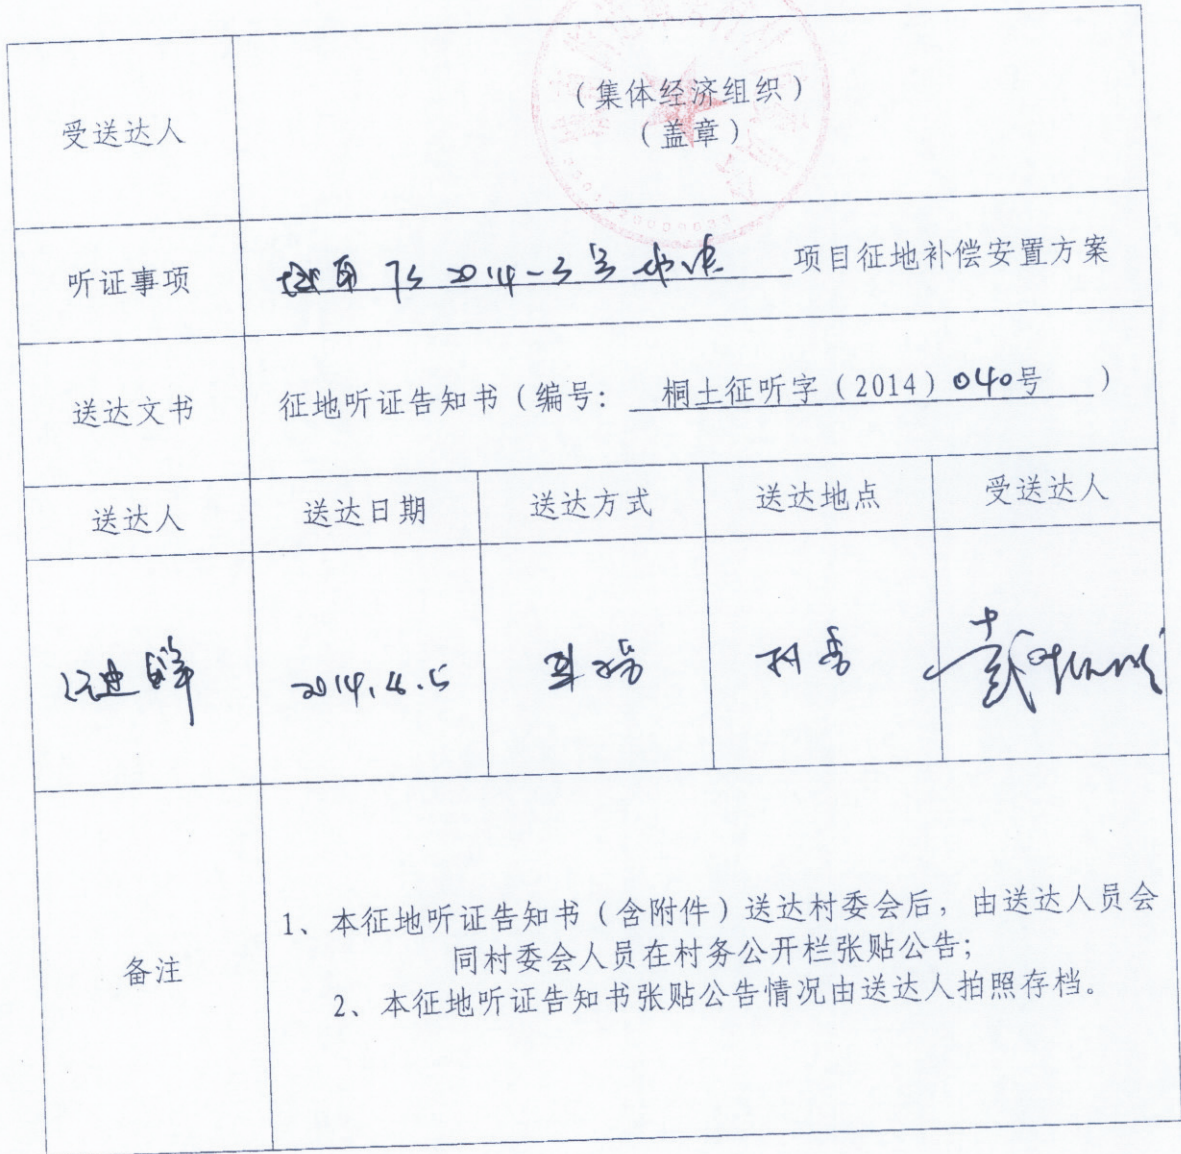 （集体经济组织）
受送达人
（盖章）
听证事项
2014-3号地块 项目征地补偿安置方案
送达文书
征地听证告知书（编号： 桐土征听字（2014）040号 ）
送达人 送达日期 送达方式 送达地点 受送达人
2014. 村委
备注
1、本征地听证告知书（含附件）送达村委会后，由送达人员会
同村委会人员在村务公开栏张贴公告；
2、本征地听证告知书张贴公告情况由送达人拍照存档。